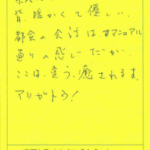 皆、温かくて優しい。
都会の会話はマニュアル
通りの感じだが、
ここは違う。癒されます。
アリガトウ!